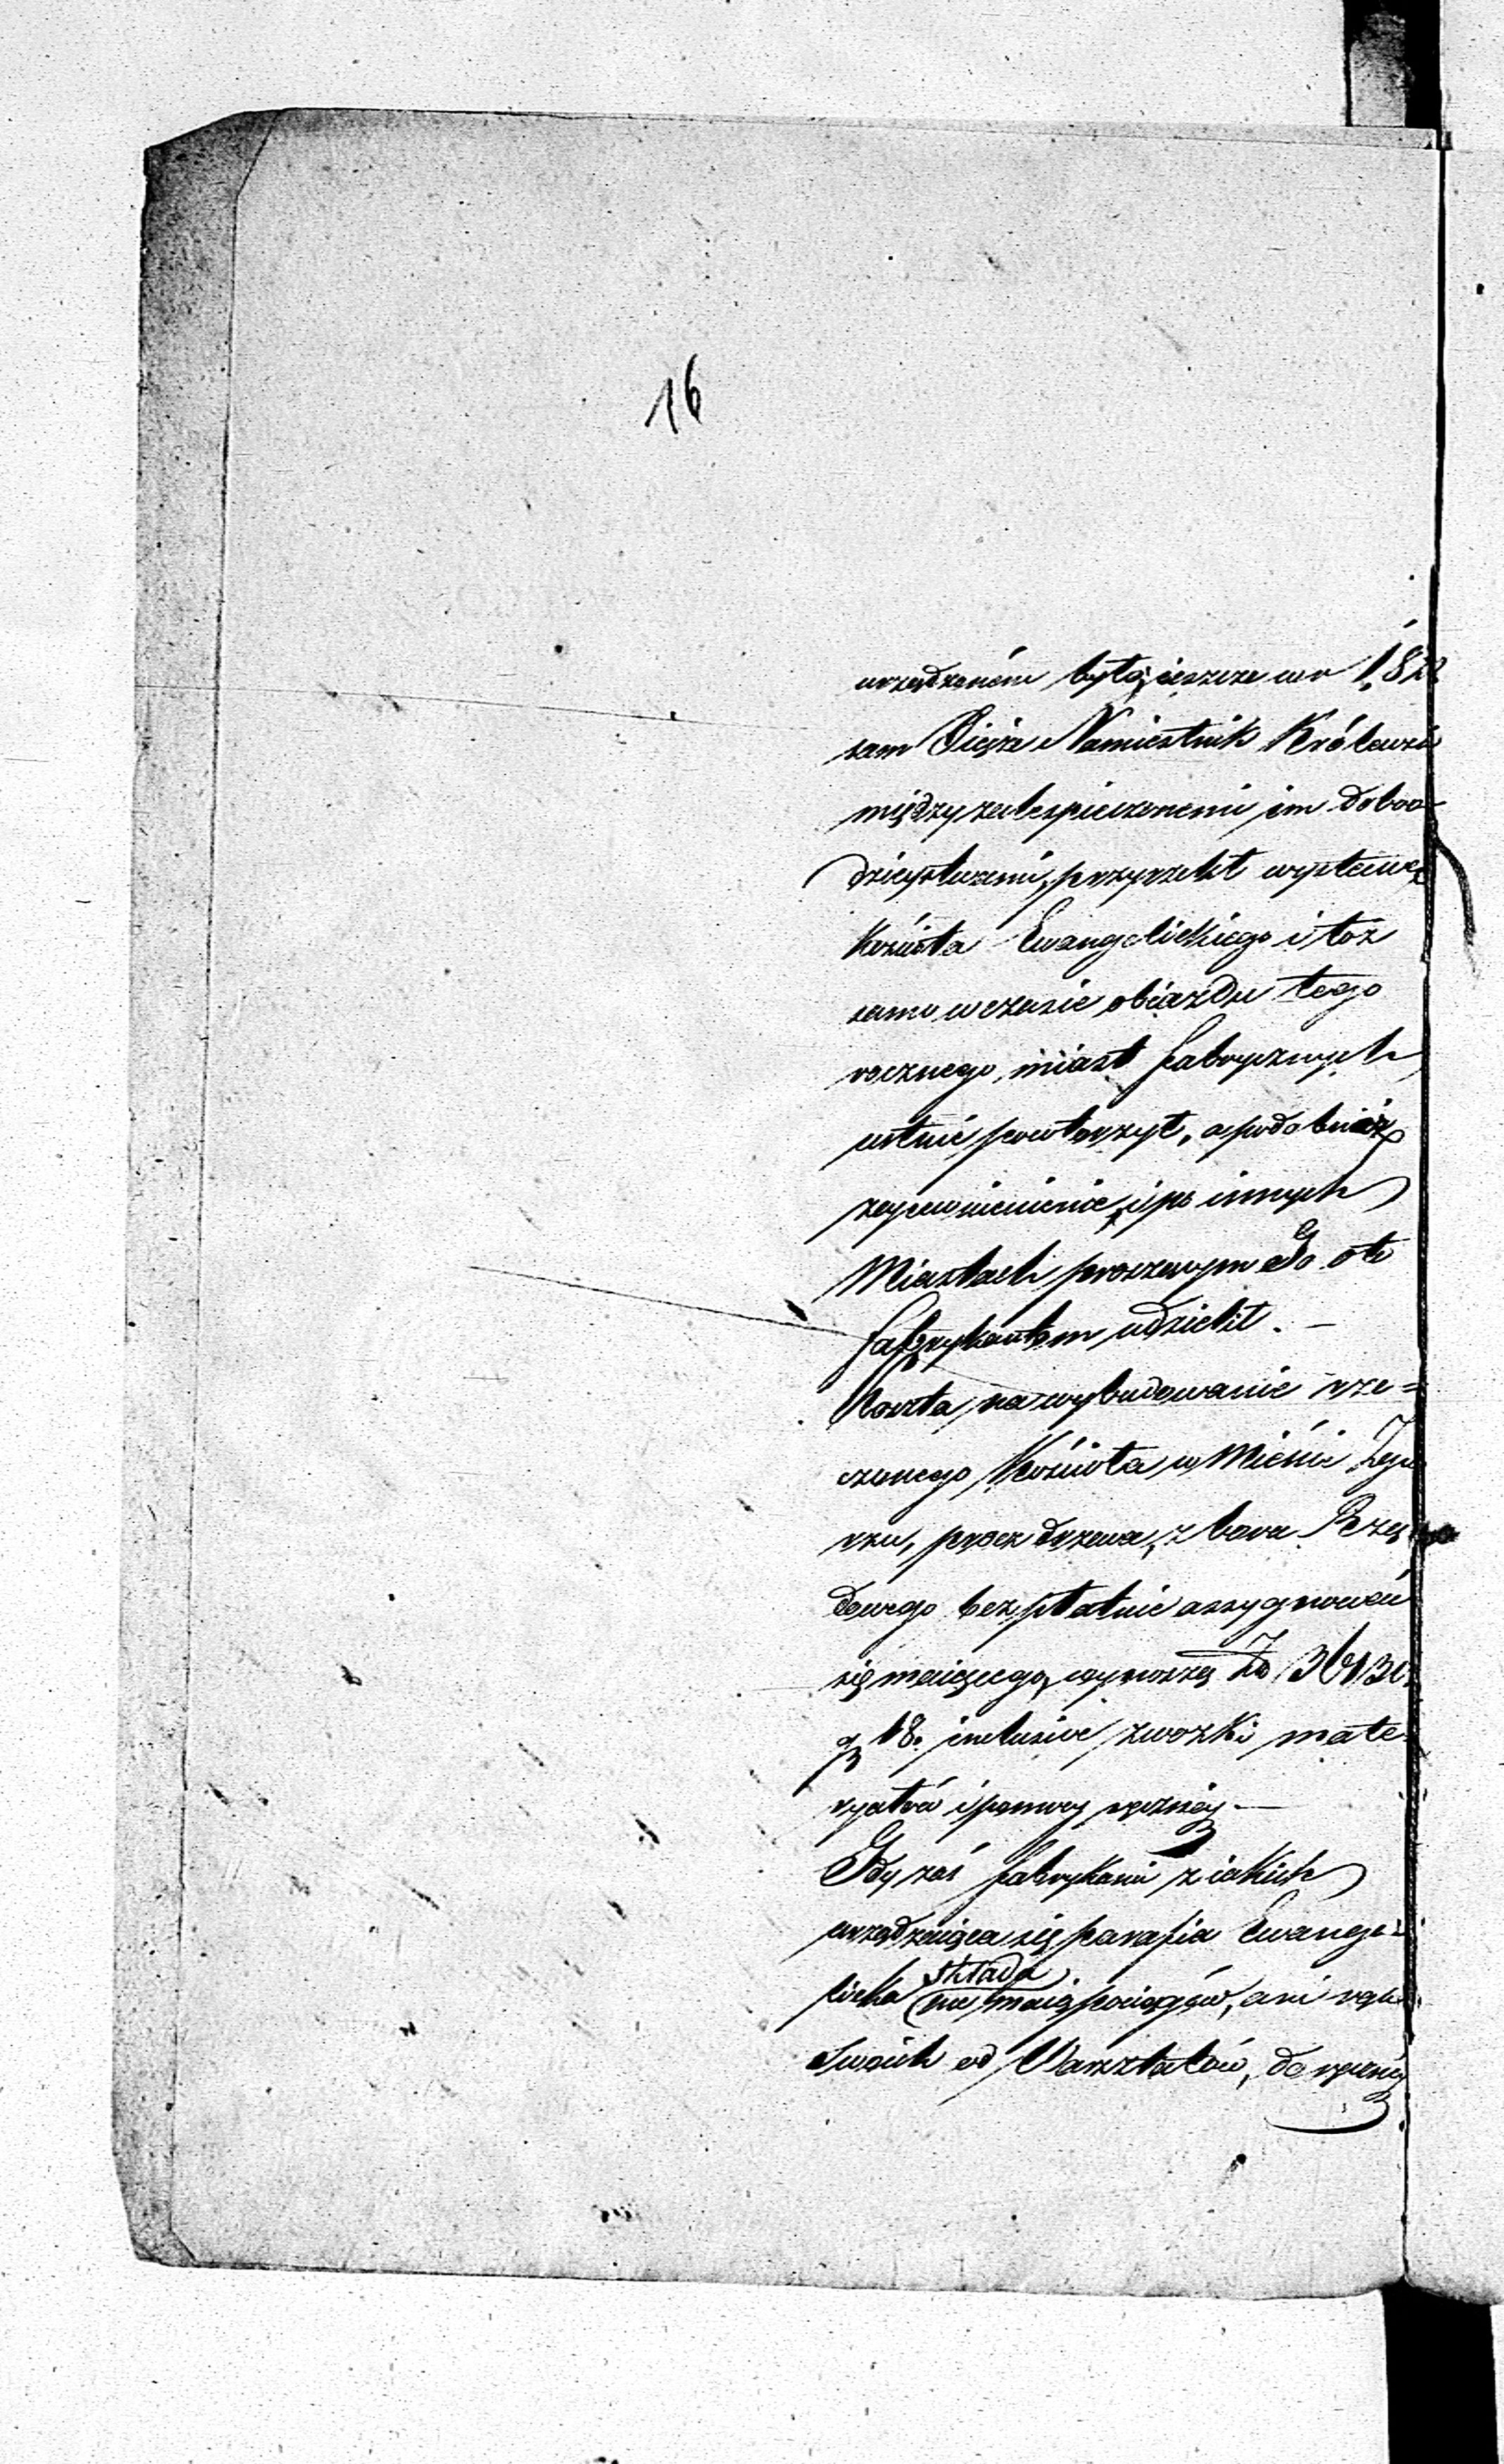 16
urządzoném było, ieszcze w r 182
sam Xiąże Namiestnik Królewski
między zabespieczonemi im dobro
dzieystwami, przyrzekł wystawę
Kościoła Ewangelickiego i toż
samo w czasie obiazdu tego
rocznego, miast fabrycznych
ustnie powtorzył, a podobnież
zapewnienie, i po innych
Miastach proszącym Go o to
fabrykantom udzielił. —
Koszta na wybudowanie rze=
czonego Kościoła w Mieście Zgie
rzu, prócz drzewa, z boru Rzą
dowego bezpłatnie assygnować
się maiącego, wynoszą Zł 36130
g 18. inclusive zwozki mate
ryałów i pomocy ręczney. —
Gdy zaś fabrykanci z iakich
urządzaiąca się parafia Ewange=
licka składa nie maią pociągów, ani rąk
swoich od Warsztatów, do ręczney